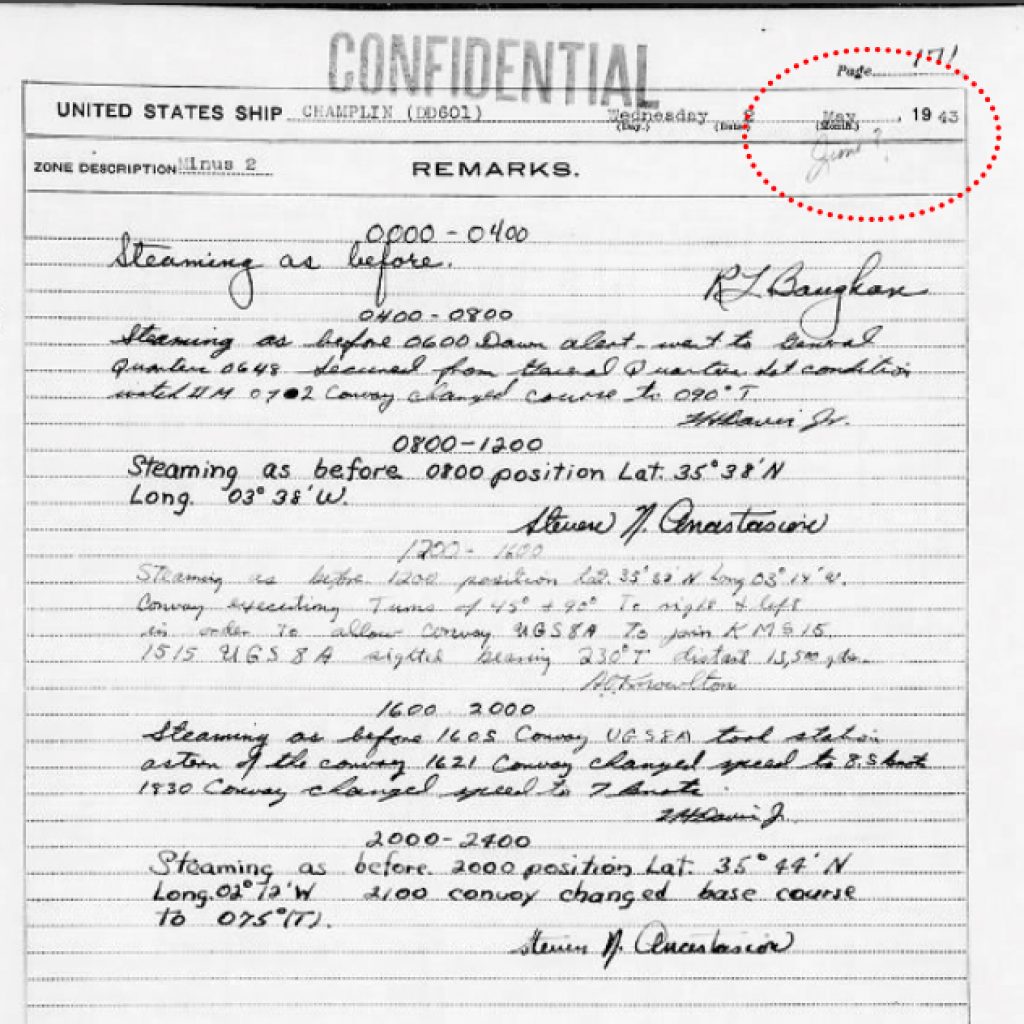 CONFIDENTIAL
Page 171
UNITED STATES SHIP CHAMPLIN (DD601) Wednesday 2 May, 19 43
(Day.) (Date) (Month.)
June ?
ZONE DESCRIPTION Minus 2 REMARKS.
0000 - 0400
Steaming as before.
R L Baughan
0400 - 0800
Steaming as before 0600 Dawn alert - went to General
Quarters 0648 Secured from General Quarters set condition
watch II M 0702 Convoy changed course to 090° T
Davis Jr.
0800-1200
Steaming as before 0800 position Lat. 35° 38' N
Long. 03° 38' W.
Steven N. Anastasion
1200 - 1600
Steaming as before. 1200 position Lat. 35° 32' N Long 03° 14' W.
Convoy executing Turns of 45° + 90° To right & left
in order To allow Convoy UGS8A To join KMS 15.
1515 UGS 8A sighted bearing 230° T distant 13,500 yds.
Knowlton
1600 2000
Steaming as before 1605 Convoy UGS8A took station
astern of the convoy 1621 Convoy changed speed to 8.5 knots
1930 Convoy changed speed to 7 knots.
Davis Jr.
2000-2400
Steaming as before. 2000 position Lat. 35° 44' N
Long. 02° 12' W 2100 convoy changed base course
to 075°(T).
Steven N. Anastasion